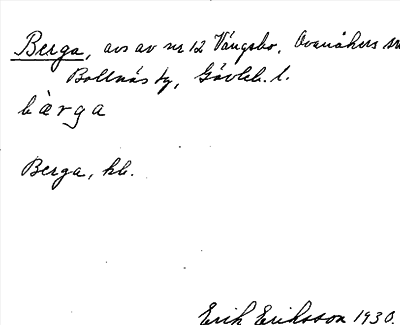 Berga, avs av nr 12 Vängsbo, Ovanåkers
Bollnäs tg, Gävleb. l.
bàrga
Berga, kb.
Erik Eriksson 1930.